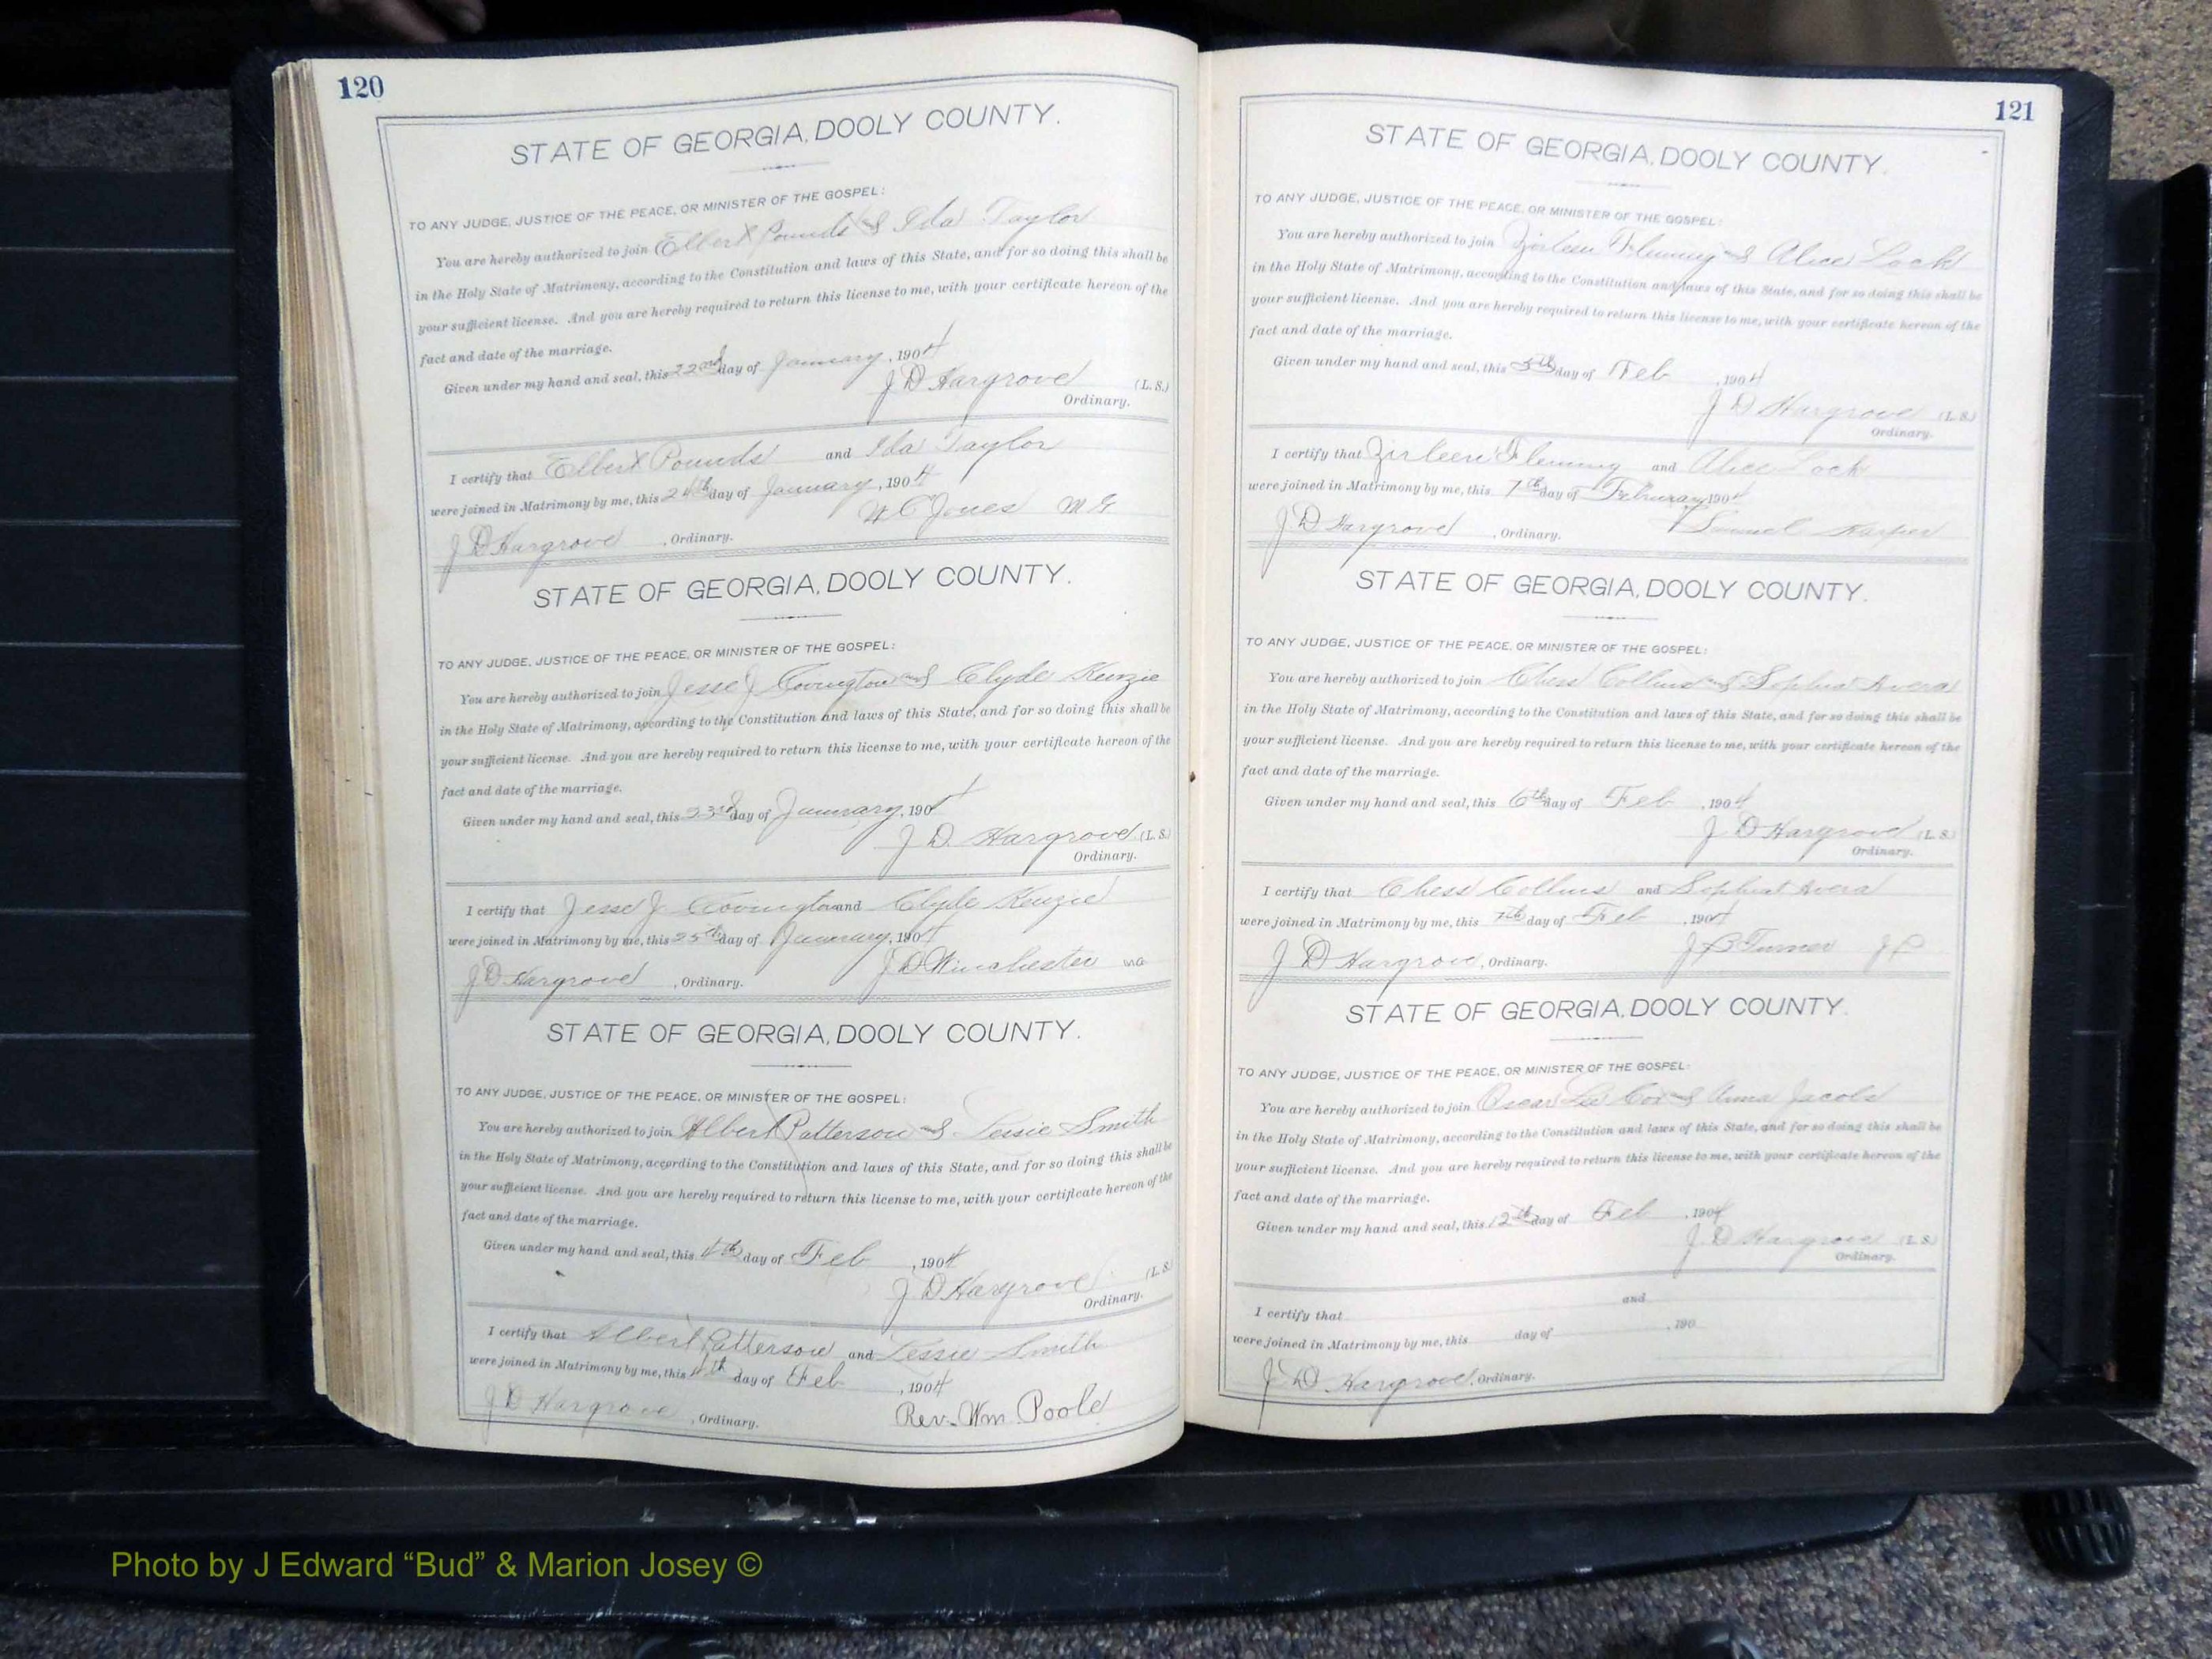 120
STATE OF GEORGIA, DOOLY COUNTY.
TO ANY JUDGE, JUSTICE OF THE PEACE, OR MINISTER OF THE GOSPEL:
You are hereby authorized to join Elbert Pounds & Ida Taylor
in the Holy State of Matrimony, according to the Constitution and laws of this State, and for so doing this shall be
your sufficient license. And you are hereby required to return this license to me, with your certificate hereon of the
fact and date of the marriage.
Given under my hand and seal, this 22nd day of January, 1904
J D Hargrove (L. S.)
Ordinary.
I certify that Elbert Pounds and Ida Taylor
were joined in Matrimony by me, this 24th day of January, 1904
W C Jones M G
J D Hargrove, Ordinary.
STATE OF GEORGIA, DOOLY COUNTY.
TO ANY JUDGE, JUSTICE OF THE PEACE, OR MINISTER OF THE GOSPEL:
You are hereby authorized to join Jesse J Covington and Clyde Kenzie
in the Holy State of Matrimony, according to the Constitution and laws of this State, and for so doing this shall be
your sufficient license. And you are hereby required to return this license to me, with your certificate hereon of the
fact and date of the marriage.
Given under my hand and seal, this 23rd day of January, 1904
J. D. Hargrove (L. S.)
Ordinary.
I certify that Jesse J Covington and Clyde Kenzie
were joined in Matrimony by me, this 25th day of January, 1904
J D Winchester
J D Hargrove, Ordinary.
STATE OF GEORGIA, DOOLY COUNTY.
TO ANY JUDGE, JUSTICE OF THE PEACE, OR MINISTER OF THE GOSPEL:
You are hereby authorized to join Albert Patterson & Lessie Smith
in the Holy State of Matrimony, according to the Constitution and laws of this State, and for so doing this shall be
your sufficient license. And you are hereby required to return this license to me, with your certificate hereon of the
fact and date of the marriage.
Given under my hand and seal, this 4th day of Feb, 1904
J. D Hargrove (L. S.
Ordinary.
I certify that Albert Patterson and Lessie Smith
were joined in Matrimony by me, this 4th day of Feb, 1904
Rev. Wm. Poole
J D Hargrove, Ordinary.
121
STATE OF GEORGIA, DOOLY COUNTY.
TO ANY JUDGE, JUSTICE OF THE PEACE, OR MINISTER OF THE GOSPEL:
You are hereby authorized to join Zirleen Fleming & Alice Lock
in the Holy State of Matrimony, according to the Constitution and laws of this State, and for so doing this shall be
your sufficient license. And you are hereby required to return this license to me, with your certificate hereon of the
fact and date of the marriage.
Given under my hand and seal, this 5th day of Feb, 1904
J D Hargrove (L. S.)
Ordinary.
I certify that Zirleen Fleming and Alice Lock
were joined in Matrimony by me, this 7th day of February 1904
Samuel Harper
J. D Hargrove, Ordinary.
STATE OF GEORGIA, DOOLY COUNTY.
TO ANY JUDGE, JUSTICE OF THE PEACE, OR MINISTER OF THE GOSPEL:
You are hereby authorized to join Chess Collins and Avera
in the Holy State of Matrimony, according to the Constitution and laws of this State, and for so doing this shall be
your sufficient license. And you are hereby required to return this license to me, with your certificate hereon of the
fact and date of the marriage.
Given under my hand and seal, this 6th day of Feb, 1904
J D Hargrove (L. S.)
Ordinary.
I certify that Chess Collins and Avera
were joined in Matrimony by me, this 7th day of Feb, 1904
Turner J P
J D Hargrove, Ordinary.
STATE OF GEORGIA, DOOLY COUNTY.
TO ANY JUDGE, JUSTICE OF THE PEACE, OR MINISTER OF THE GOSPEL:
You are hereby authorized to join Oscar Lee Cox & Anna Jacobs
in the Holy State of Matrimony, according to the Constitution and laws of this State, and for so doing this shall be
your sufficient license. And you are hereby required to return this license to me, with your certificate hereon of the
fact and date of the marriage.
Given under my hand and seal, this 12th day of Feb, 1904
J. D Hargrove (L. S.)
Ordinary.
I certify that and
were joined in Matrimony by me, this day of , 190
J D Hargrove, Ordinary.
Photo by J Edward “Bud” & Marion Josey ©